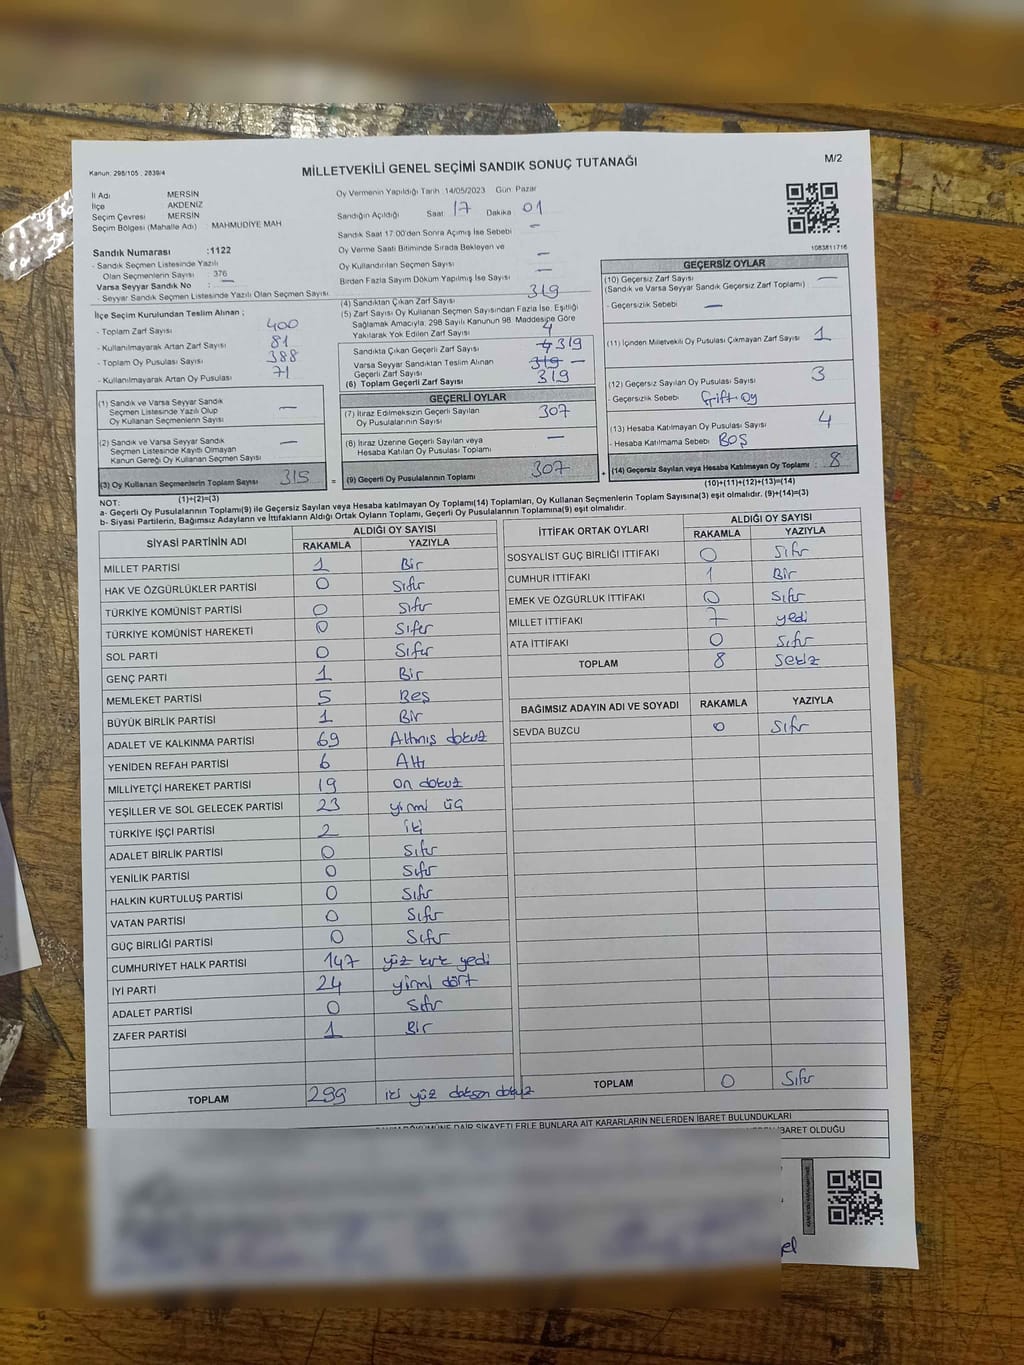 Kanun: 298/105 , 2839/4
MİLLETVEKİLİ GENEL SEÇİMİ SANDIK SONUÇ TUTANAĞI
M/2
İl Adı MERSİN
İlçe AKDENİZ
Seçim Çevresi MERSİN
Seçim Bölgesi (Mahalle Adı) MAHMUDİYE MAH
Sandık Numarası :1122
- Sandık Seçmen Listesinde Yazılı
Olan Seçmenlerin Sayısı : 376
Varsa Seyyar Sandık No : —
- Seyyar Sandık Seçmen Listesinde Yazılı Olan Seçmen Sayısı
İlçe Seçim Kurulundan Teslim Alınan ;
- Toplam Zarf Sayısı 400
- Kullanılmayarak Artan Zarf Sayısı 81
- Toplam Oy Pusulası Sayısı 388
- Kullanılmayarak Artan Oy Pusulası 71
(1) Sandık ve Varsa Seyyar Sandık
Seçmen Listesinde Yazılı Olup
Oy Kullanan Seçmenlerin Sayısı —
(2) Sandık ve Varsa Seyyar Sandık
Seçmen Listesinde Kayıtlı Olmayan
Kanun Gereği Oy Kullanan Seçmen Sayısı —
(3) Oy Kullanan Seçmenlerin Toplam Sayısı 315
(1)+(2)=(3)
Oy Vermenin Yapıldığı Tarih :14/05/2023 Gün Pazar
Sandığın Açıldığı Saat 17 Dakika 01
Sandık Saat 17:00'den Sonra Açılmış İse Sebebi —
Oy Verme Saati Bitiminde Sırada Bekleyen ve
Oy Kullandırılan Seçmen Sayısı —
Birden Fazla Sayım Döküm Yapılmış İse Sayısı —
(4) Sandıktan Çıkan Zarf Sayısı 319
(5) Zarf Sayısı Oy Kullanan Seçmen Sayısından Fazla İse, Eşitliği
Sağlamak Amacıyla; 298 Sayılı Kanunun 98. Maddesine Göre
Yakılarak Yok Edilen Zarf Sayısı 4
Sandıkta Çıkan Geçerli Zarf Sayısı 319
Varsa Seyyar Sandıktan Teslim Alınan
Geçerli Zarf Sayısı 319 —
(6) Toplam Geçerli Zarf Sayısı 319
GEÇERLİ OYLAR
(7) İtiraz Edilmeksizin Geçerli Sayılan
Oy Pusulalarının Sayısı 307
(8) İtiraz Üzerine Geçerli Sayılan veya
Hesaba Katılan Oy Pusulaları Toplamı —
= (9) Geçerli Oy Pusulalarının Toplamı 307 +
1083811716
GEÇERSİZ OYLAR
(10) Geçersiz Zarf Sayısı —
(Sandık ve Varsa Seyyar Sandık Geçersiz Zarf Toplamı)
- Geçersizlik Sebebi —
(11) İçinden Milletvekili Oy Pusulası Çıkmayan Zarf Sayısı 1
(12) Geçersiz Sayılan Oy Pusulası Sayısı 3
- Geçersizlik Sebebi Çift Oy
(13) Hesaba Katılmayan Oy Pusulası Sayısı 4
- Hesaba Katılmama Sebebi BOŞ
(14) Geçersiz Sayılan veya Hesaba Katılmayan Oy Toplamı : 8
(10)+(11)+(12)+(13)=(14)
NOT:
a- Geçerli Oy Pusulalarının Toplamı(9) ile Geçersiz Sayılan veya Hesaba Katılmayan Oy Toplamı(14) Toplamları, Oy Kullanan Seçmenlerin Toplam Sayısına(3) eşit olmalıdır. (9)+(14)=(3)
b- Siyasi Partilerin, Bağımsız Adayların ve İttifakların Aldığı Ortak Oyların Toplamı, Geçerli Oy Pusulalarının Toplamına(9) eşit olmalıdır.
SİYASİ PARTİNİN ADI ALDIĞI OY SAYISI
RAKAMLA YAZIYLA
MİLLET PARTİSİ 1 Bir
HAK VE ÖZGÜRLÜKLER PARTİSİ 0 Sıfır
TÜRKİYE KOMÜNİST PARTİSİ 0 Sıfır
TÜRKİYE KOMÜNİST HAREKETİ 0 Sıfır
SOL PARTİ 0 Sıfır
GENÇ PARTİ 1 Bir
MEMLEKET PARTİSİ 5 Beş
BÜYÜK BİRLİK PARTİSİ 1 Bir
ADALET VE KALKINMA PARTİSİ 69 Altmış dokuz
YENİDEN REFAH PARTİSİ 6 Altı
MİLLİYETÇİ HAREKET PARTİSİ 19 On dokuz
YEŞİLLER VE SOL GELECEK PARTİSİ 23 yirmi üç
TÜRKİYE İŞÇİ PARTİSİ 2 iki
ADALET BİRLİK PARTİSİ 0 Sıfır
YENİLİK PARTİSİ 0 Sıfır
HALKIN KURTULUŞ PARTİSİ 0 Sıfır
VATAN PARTİSİ 0 Sıfır
GÜÇ BİRLİĞİ PARTİSİ 0 Sıfır
CUMHURİYET HALK PARTİSİ 147 yüz kırk yedi
İYİ PARTİ 24 yirmi dört
ADALET PARTİSİ 0 Sıfır
ZAFER PARTİSİ 1 Bir
TOPLAM 299 iki yüz doksan dokuz
İTTİFAK ORTAK OYLARI ALDIĞI OY SAYISI
RAKAMLA YAZIYLA
SOSYALİST GÜÇ BİRLİĞİ İTTİFAKI 0 Sıfır
CUMHUR İTTİFAKI 1 Bir
EMEK VE ÖZGÜRLÜK İTTİFAKI 0 Sıfır
MİLLET İTTİFAKI 7 yedi
ATA İTTİFAKI 0 Sıfır
TOPLAM 8 Sekiz
BAĞIMSIZ ADAYIN ADI VE SOYADI RAKAMLA YAZIYLA
SEVDA BUZCU 0 Sıfır
TOPLAM 0 Sıfır
DÖKÜMÜNE DAİR ŞİKAYETLERLE BUNLARA AİT KARARLARIN NELERDEN İBARET BULUNDUKLARI
İBARET OLDUĞU